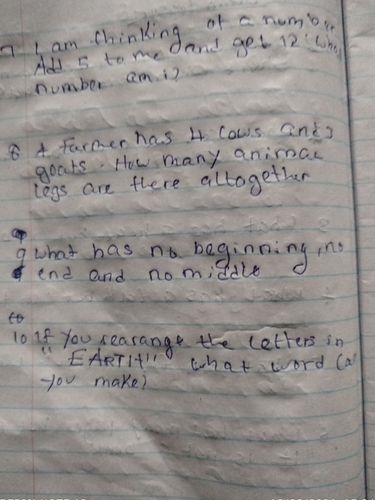 7 I am thinking of a number
Add 5 to me and get 12. what
number am i?
8 A farmer has 4 cows and 3
goats. How many animal
legs are there altogether
9 what has no beginning, no
end and no middle
10 if you rearange the letters in
"EARTH" what word ca
you make?